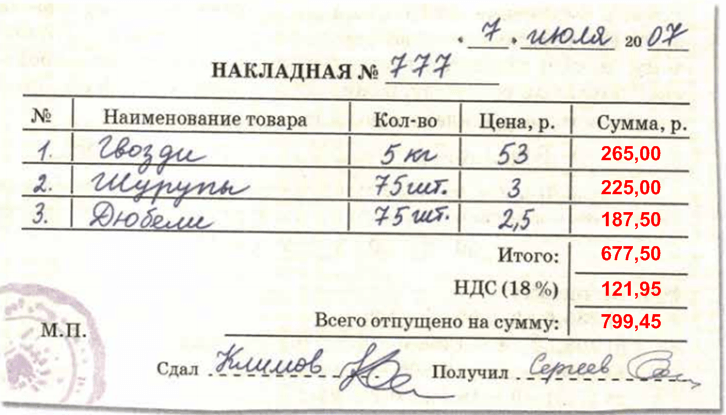 « 7 » июля 2007
НАКЛАДНАЯ № 777
№ Наименование товара Кол-во Цена, р. Сумма, р.
1. Гвозди 5 кг 53 265,00
2. Шурупы 75 шт. 3 225,00
3. Дюбели 75 шт. 2,5 187,50
Итого: 677,50
НДС (18 %) 121,95
Всего отпущено на сумму: 799,45
М.П.
Сдал Климов Получил Сергеев